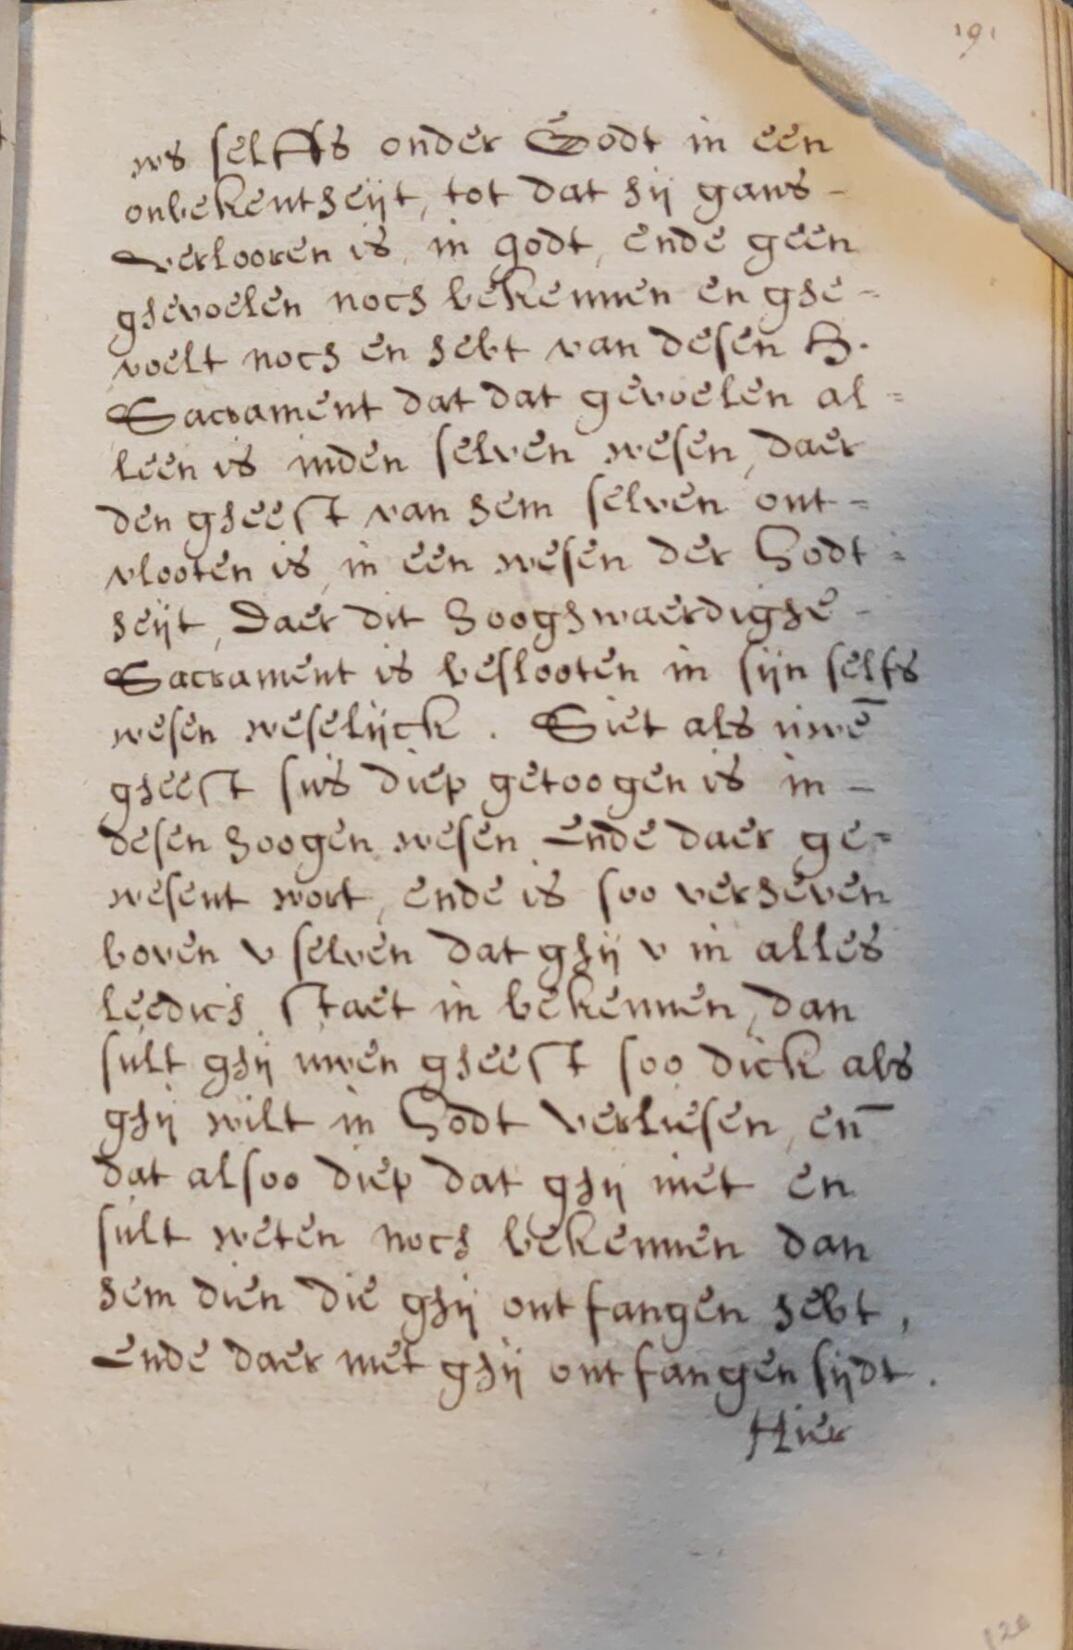 191
ws selffs onder Godt in een
onbekentheijt, tot dat hij gans -
verlooren is, in godt, ende geen
ghevoelen noch bekennen en ghe =
voelt noch en hebt van desen H.
Sacrament dat dat gevoelen al =
leen is inden selven wesen, daer
den gheest van hem selven ont =
vlooten is, in een wesen der Godt =
heijt, Daer dit Hooghwaerdighe -
Sacrament is beslooten in sijn selfs
wesen weselijck. Siet als uwē
gheest sus diep getoogen is in -
desen hoogen wesen Ende daer ge =
wesent wort, ende is soo verheven
boven v selven dat ghij v in alles
leedich staet in bekennen, dan
sult ghij uwen gheest soo dick als
ghij wilt in Godt verliesen, en̄
dat alsoo diep dat ghij niet en
sult weten noch bekennen dan
hem dien die ghij ontfangen hebt,
Ende daer met ghij ontfangen sijdt.
Hier
120